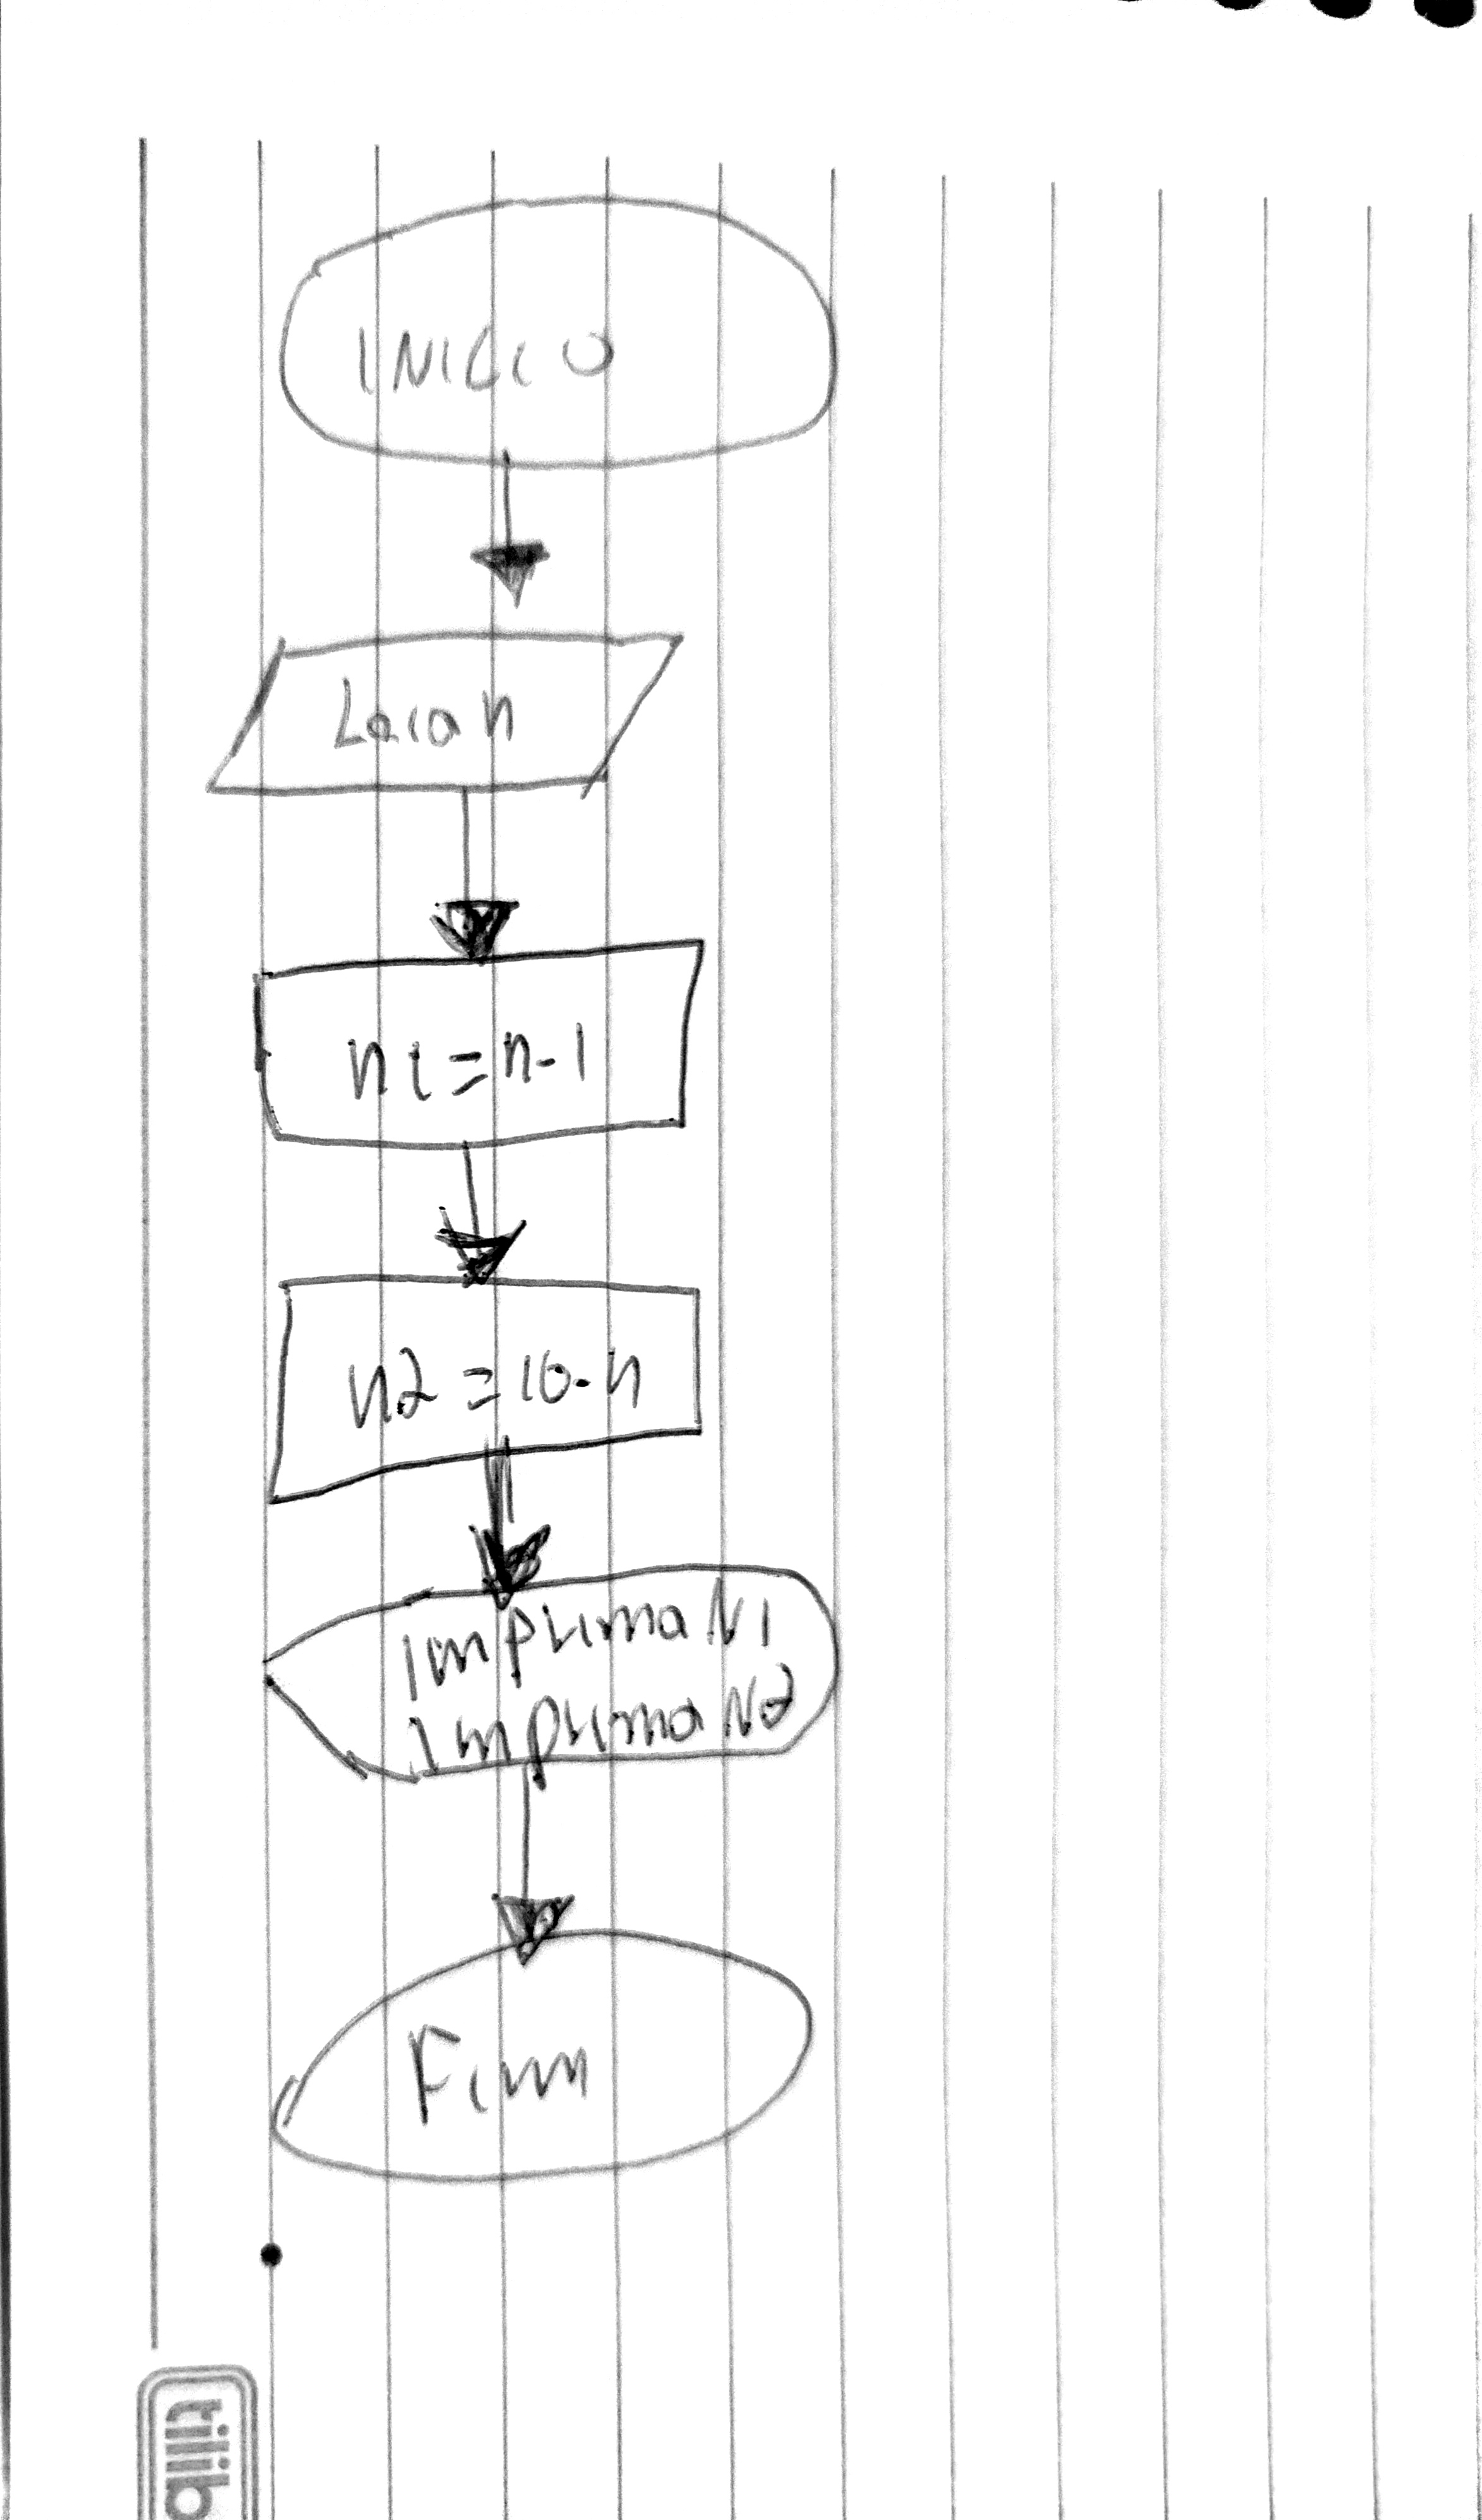 INICIO
Leia n
n1 = n-1
n2 = 10-n
Imprima N1
Imprima N2
Fim
tilib